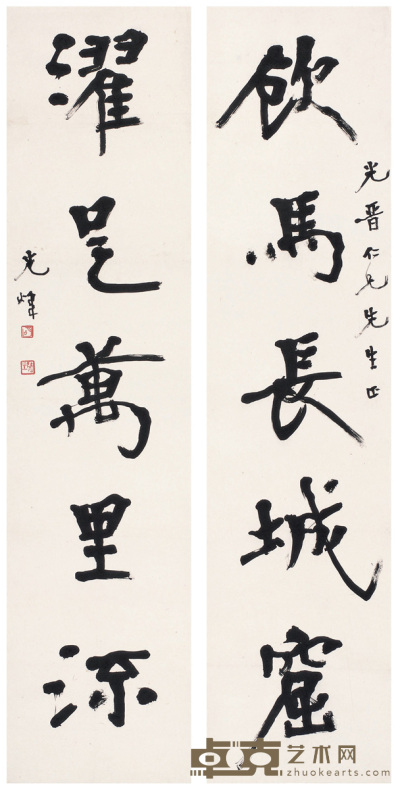 飲馬長城窟
光晋仁兄先生正
濯足萬里流
光煒
卓克艺术网
zhuokearts.com